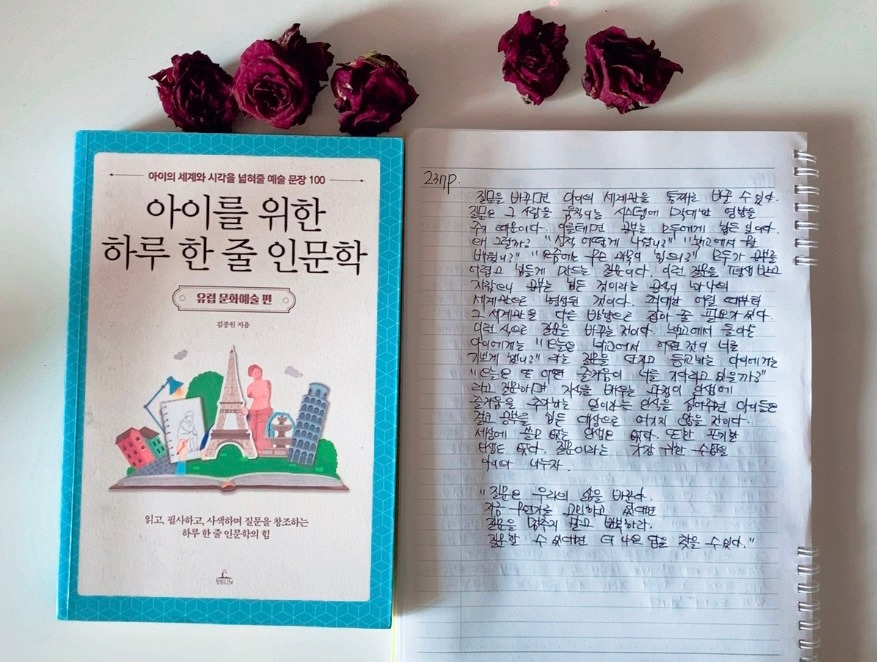 아이의 세계와 시각을 넓혀줄 예술 문장 100
아이를 위한
하루 한 줄 인문학
유럽 문화예술 편
김종원 지음
읽고, 필사하고, 사색하며 질문을 창조하는
하루 한 줄 인문학의 힘
청림Life
237p.
질문을 바꾸면 아이의 세계관을 통째로 바꿀 수 있다.
질문은 그 사람을 움직이는 시스템에 막대한 영향을
주기 때문이다. 이를테면 공부는 모두에게 힘든 일이다.
왜 그럴까? "성적 어떻게 나왔니?" "학교에서 뭘
배웠니?" 모두가 공부를
어렵고 힘들게 만드는 질문이다. 이런 질문을 평생 받고
자랐으니 공부는 힘든 것이라는 공식이 하나의
세계관으로 형성된 것이다. 최대한 어릴 때부터
그 세계관을 다른 방향으로 잡아 줄 필요가 있다.
이런 식으로 질문을 바꾸는 것이다. 학교에서 돌아온
아이에게는 "오늘은 학교에서 어떤 것이 너를
기쁘게 했니?" 라는 질문을 던지고 등교하는 아이에게는
"오늘은 또 어떤 즐거움이 너를 기다리고 있을까?"
라고 질문하면 지식을 배우는 과정이 인생에
즐거움을 주는 일이라는 인식을 심어주면 아이들은
결코 공부를 힘든 대상으로 여기지 않을 것이다.
세상에 쓸모 없는 인생은 없다. 또한
인생도 없다. 질문이라는 가장 귀한 수업을
나누자.
"질문은 우리의 삶을 바꾼다.
지금 무언가를 고민하고 있다면
질문을 멈추지 말고 반복하라.
질문할 수 있다면 더 나은 답을 찾을 수 있다."